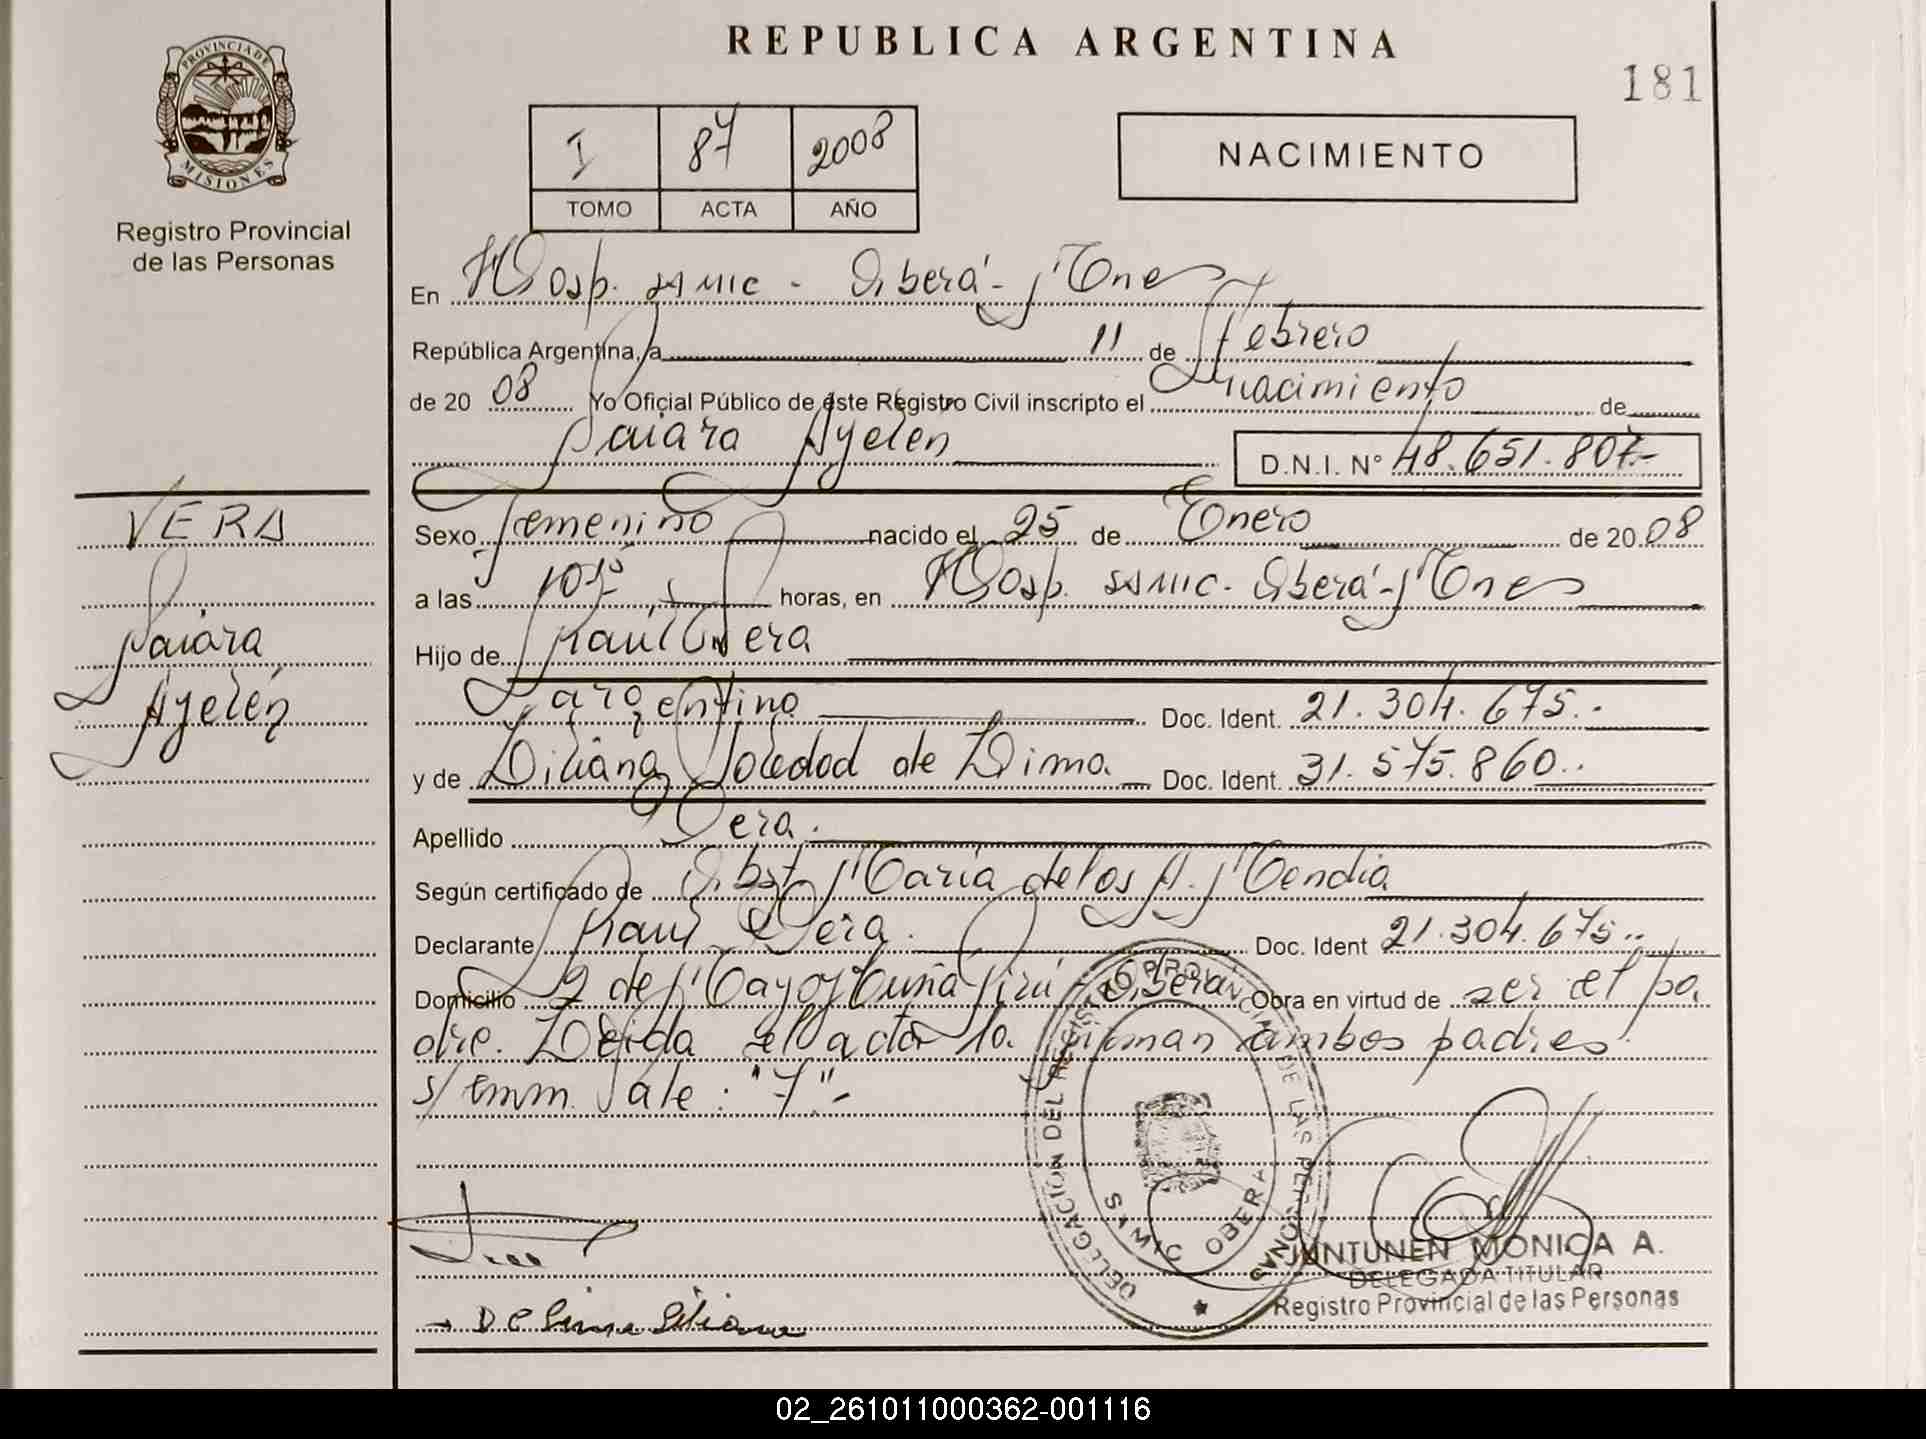 REPUBLICA ARGENTINA
181
PROVINCIA DE
MISIONES
Registro Provincial
de las Personas
I 87 2008
TOMO ACTA AÑO
NACIMIENTO
En Hosp. SAMIC - Oberá - Mnes
República Argentina, a 11 de Febrero
de 2008 Yo Oficial Público de este Registro Civil inscripto el nacimiento de
Saiara Ayelén D.N.I. N° 48.651.807.-
VERA
Saiara
Ayelén
Sexo femenino nacido el 25 de Enero de 2008
a las horas, en Hosp. SAMIC - Oberá - Mnes
Hijo de Raúl Vera
argentino Doc. Ident. 21.304.675.-
y de Liliana Soledad de Lima Doc. Ident. 31.575.860.-
Apellido Vera.
Según certificado de Obst. María de los A. Mendia
Declarante Raúl Vera. Doc. Ident 21.304.675.-
Domicilio 2 de Mayo y Cuña Pirú - Oberá Obra en virtud de ser el pa
dre. Leída el acta la firman ambos padres.
s/enm. Vale: "7".-
DELEGACION DEL REGISTRO PROVINCIAL DE LAS PERSONAS
SAMIC OBERA
De Lima Liliana
JUNTUNEN MONICA A.
DELEGADA TITULAR
Registro Provincial de las Personas
02_261011000362-001116